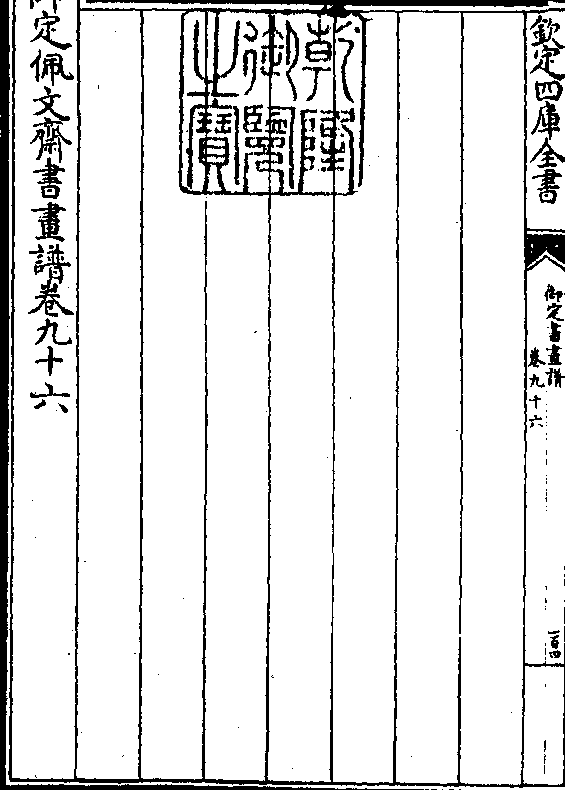 欽定四庫全書
御定書畫譜
卷九十六
一百四
乾隆
御覽
之寶
御定佩文齋書畫譜卷九十六